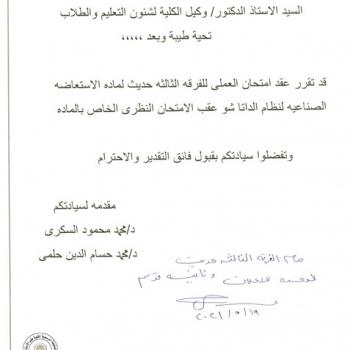 السيد الاستاذ الدكتور/ وكيل الكلية لشئون التعليم والطلاب
تحية طيبة وبعد ،،،،،
قد تقرر عقد امتحان العملى للفرقه الثالثه حديث لماده الاستعاضه
الصناعيه لنظام الداتا شو عقب الامتحان النظرى الخاص بالماده
وتفضلوا سيادتكم بقبول فائق التقدير والاحترام
مقدمه لسيادتكم
د/محمد محمود السكرى
د/محمد حسام الدين حلمى
الفرقة الثالثة